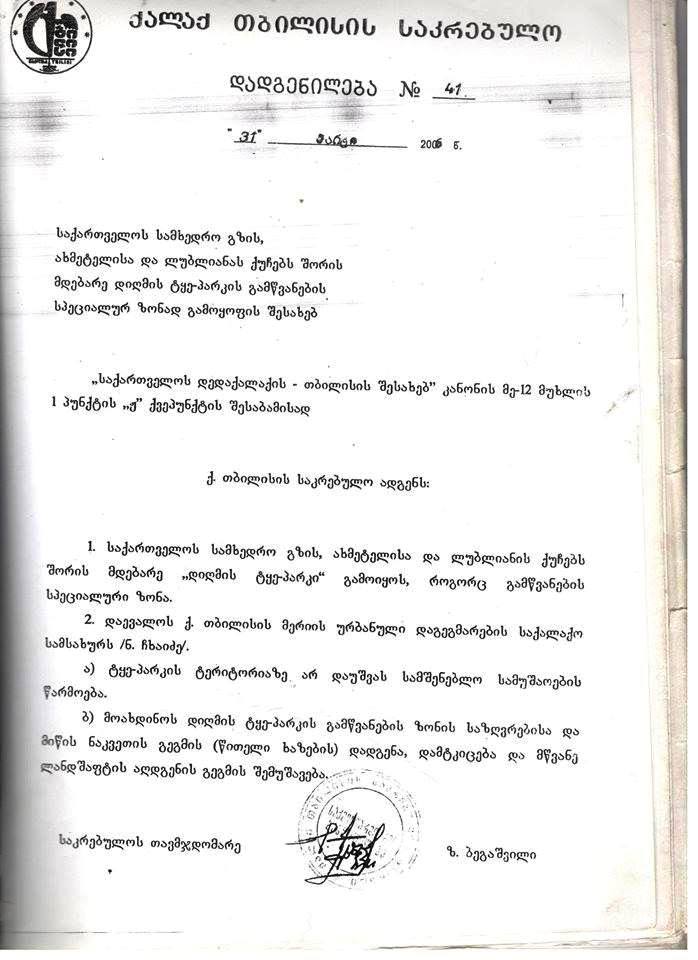 ქალაქ თბილისის საკრებულო
დადგენილება № 41
"31" მარტი 2006 წ.
საქართველოს სამხედრო გზის,
ახმეტელისა და ლუბლიანას ქუჩებს შორის
მდებარე დიღმის ტყე-პარკის გამწვანების
სპეციალურ ზონად გამოყოფის შესახებ
„საქართველოს დედაქალაქის - თბილისის შესახებ” კანონის მე-12 მუხლის
1 პუნქტის „ჟ” ქვეპუნქტის შესაბამისად
ქ. თბილისის საკრებულო ადგენს:
1. საქართველოს სამხედრო გზის, ახმეტელისა და ლუბლიანის ქუჩებს
შორის მდებარე „დიღმის ტყე-პარკი“ გამოიყოს, როგორც გამწვანების
სპეციალური ზონა.
2. დაევალოს ქ. თბილისის მერიის ურბანული დაგეგმარების საქალაქო
სამსახურს /ნ. ჩხაიძე/.
ა) ტყე-პარკის ტერიტორიაზე არ დაუშვას სამშენებლო სამუშაოების
წარმოება.
ბ) მოახდინოს დიღმის ტყე-პარკის გამწვანების ზონის საზღვრებისა და
მიწის ნაკვეთის გეგმის (წითელი ხაზების) დადგენა, დამტკიცება და მწვანე
ლანდშაფტის აღდგენის გეგმის შემუშავება.
საკრებულოს თავმჯდომარე
ზ. ბეგაშვილი